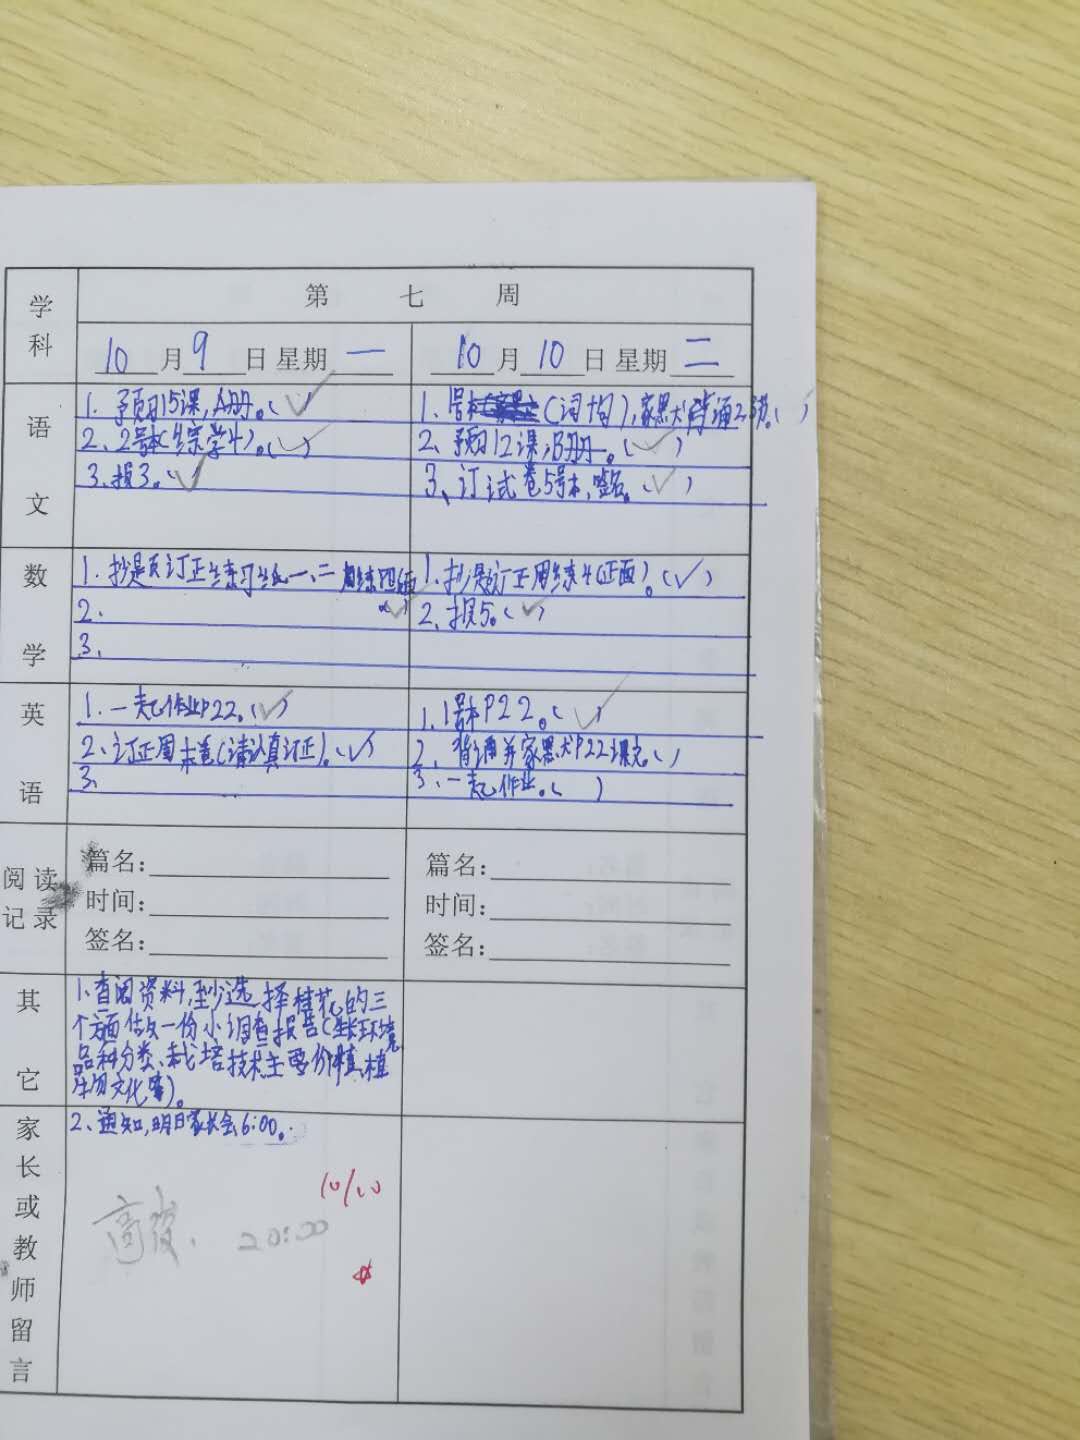 学科
第 七 周
10月9日 星期一
10月10日 星期二
语文
1. 予预习15课,A册。(✓)
2、2号本(综学4)。(✓)
3.报3。(✓)
1、1号本(词均),家默
2、预习12课,B册。(✓)
3、订试卷5号本,签名。(✓)
数学
1.抄题订正练习 一、二
2.
3.
1.抄题订正周练4(正面)。(✓)
2、报5。(✓)
英语
1.一起作业P22。(✓)
2、订正周末卷(请认真订正)。(✓)
3.
1.1号本P22。(✓)
2、背诵并家默P22课文。( )
3、一起作业。( )
阅读记录
篇名:
时间:
签名:
篇名:
时间:
签名:
其它
1、查阅资料,至少选择桂花的三
个方面做一份小调查报告(生长环境
品种分类、栽培技术主要价值、植
物文化等)。
家长或教师留言
2、通知,明日家长会6:00。
10/10
20:00